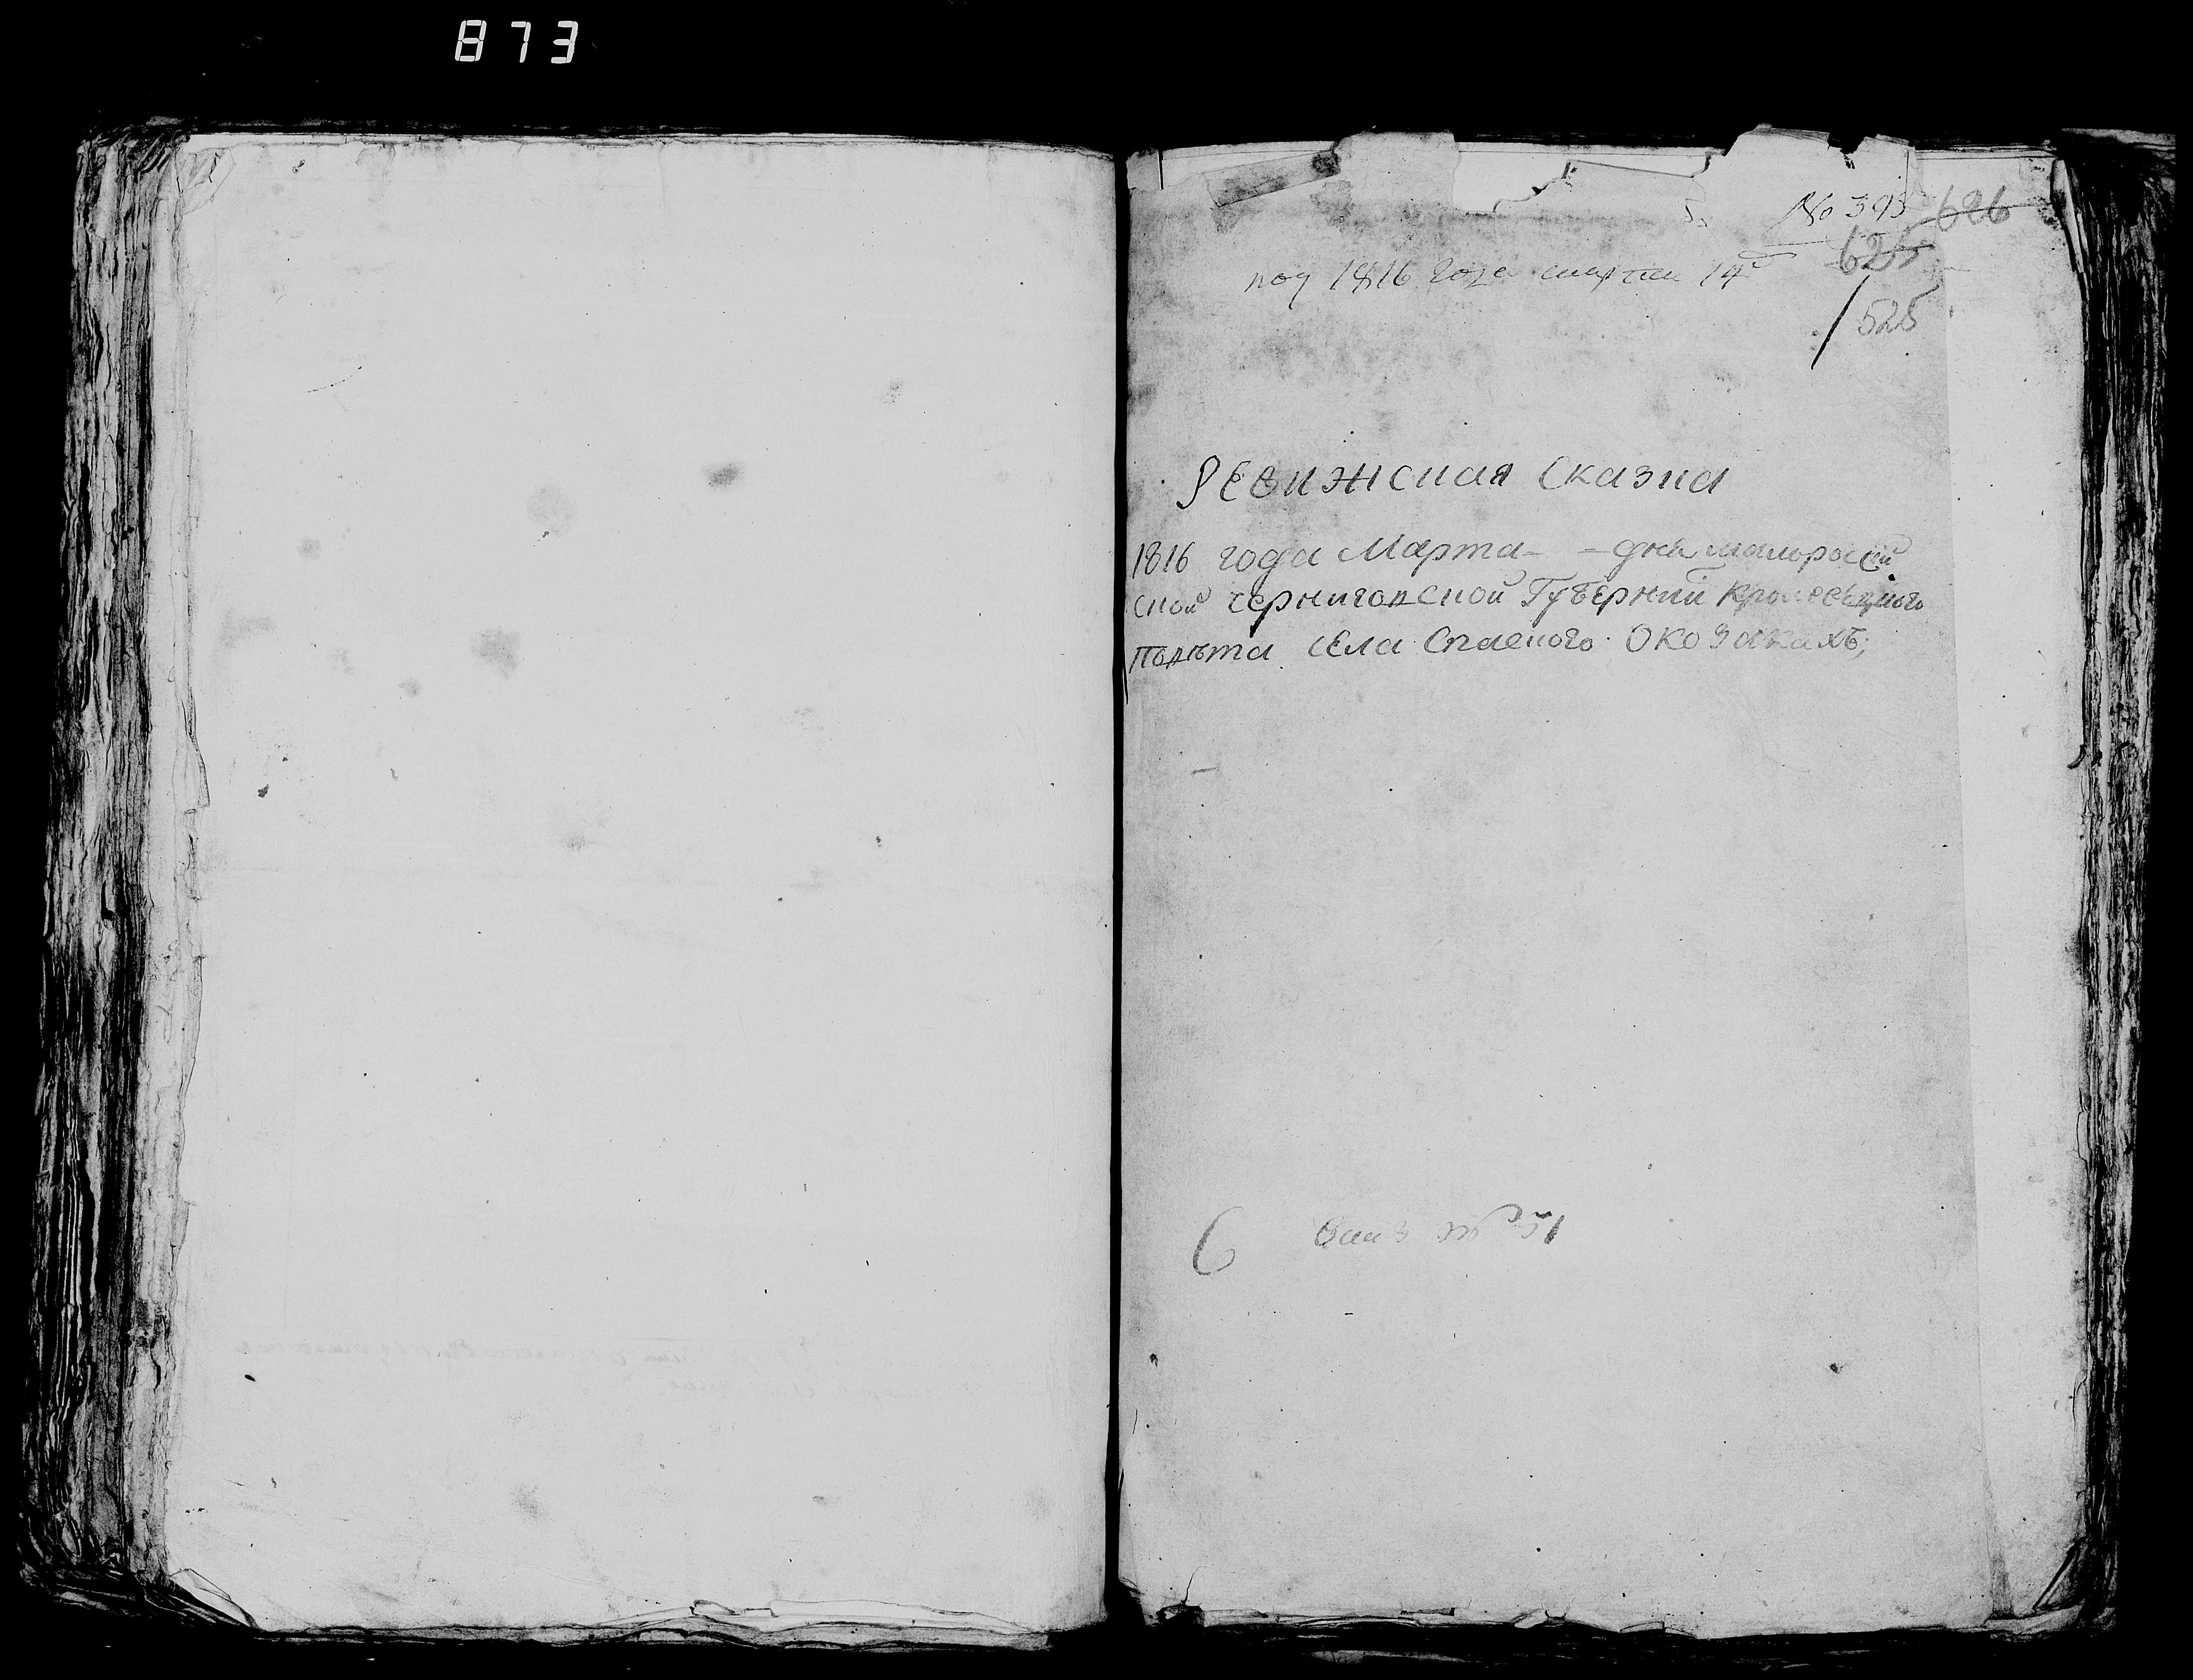 873
№ 393 626
625
под 1816 года марта 14
525
Ревижская Сказка
1816 года Марта - - дня малоросій
ской черниговской Губерніи кролевецкого
повѣта села Спаского о козакахъ;
6